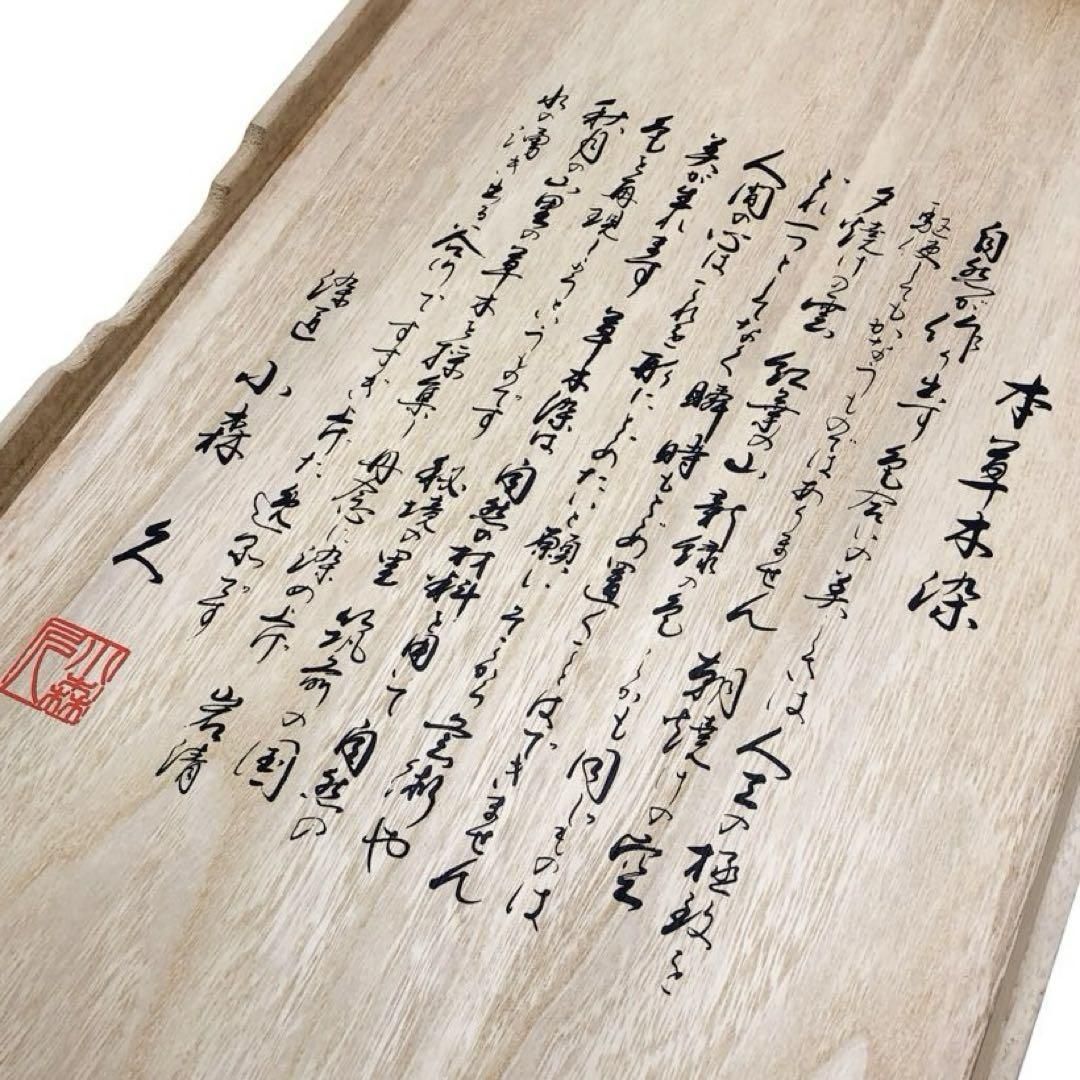 本草木染
自然が作り出す色合いの美しさは人工の極致を
駆使してもかなうものではありません 朝焼けの空
夕焼けの雲 紅葉の山 新緑の色 しかも同じものは
どれ一つとしてなく 瞬時もとどめ置くことはできません
人間の心はこれを形にとどめたいと願い そこから芸術や
美が生れます 草木染は 自然の材料を用いて 自然の
色を再現しようというものです 秘境の里 筑前の国
秋月の山里の草木を採集し 丹念に染め上げ 岩清
水の湧き出る谷川ですすぎ上げた逸品です
染匠 小森 久
小森久